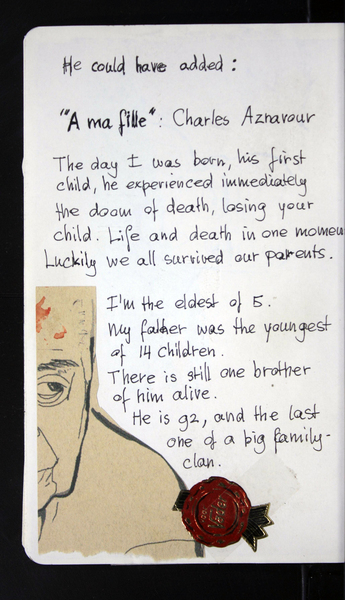 He could have added:
"A ma fille": Charles Aznavour
The day I was born, his first
child, he experienced immediately
the doom of death, losing your
child. Life and death in one momen
Luckily we all survived our parents.
I'm the eldest of 5.
My father was the youngest
of 14 children.
There is still one brother
of him alive.
He is 92, and the last
one of a big family-
clan.